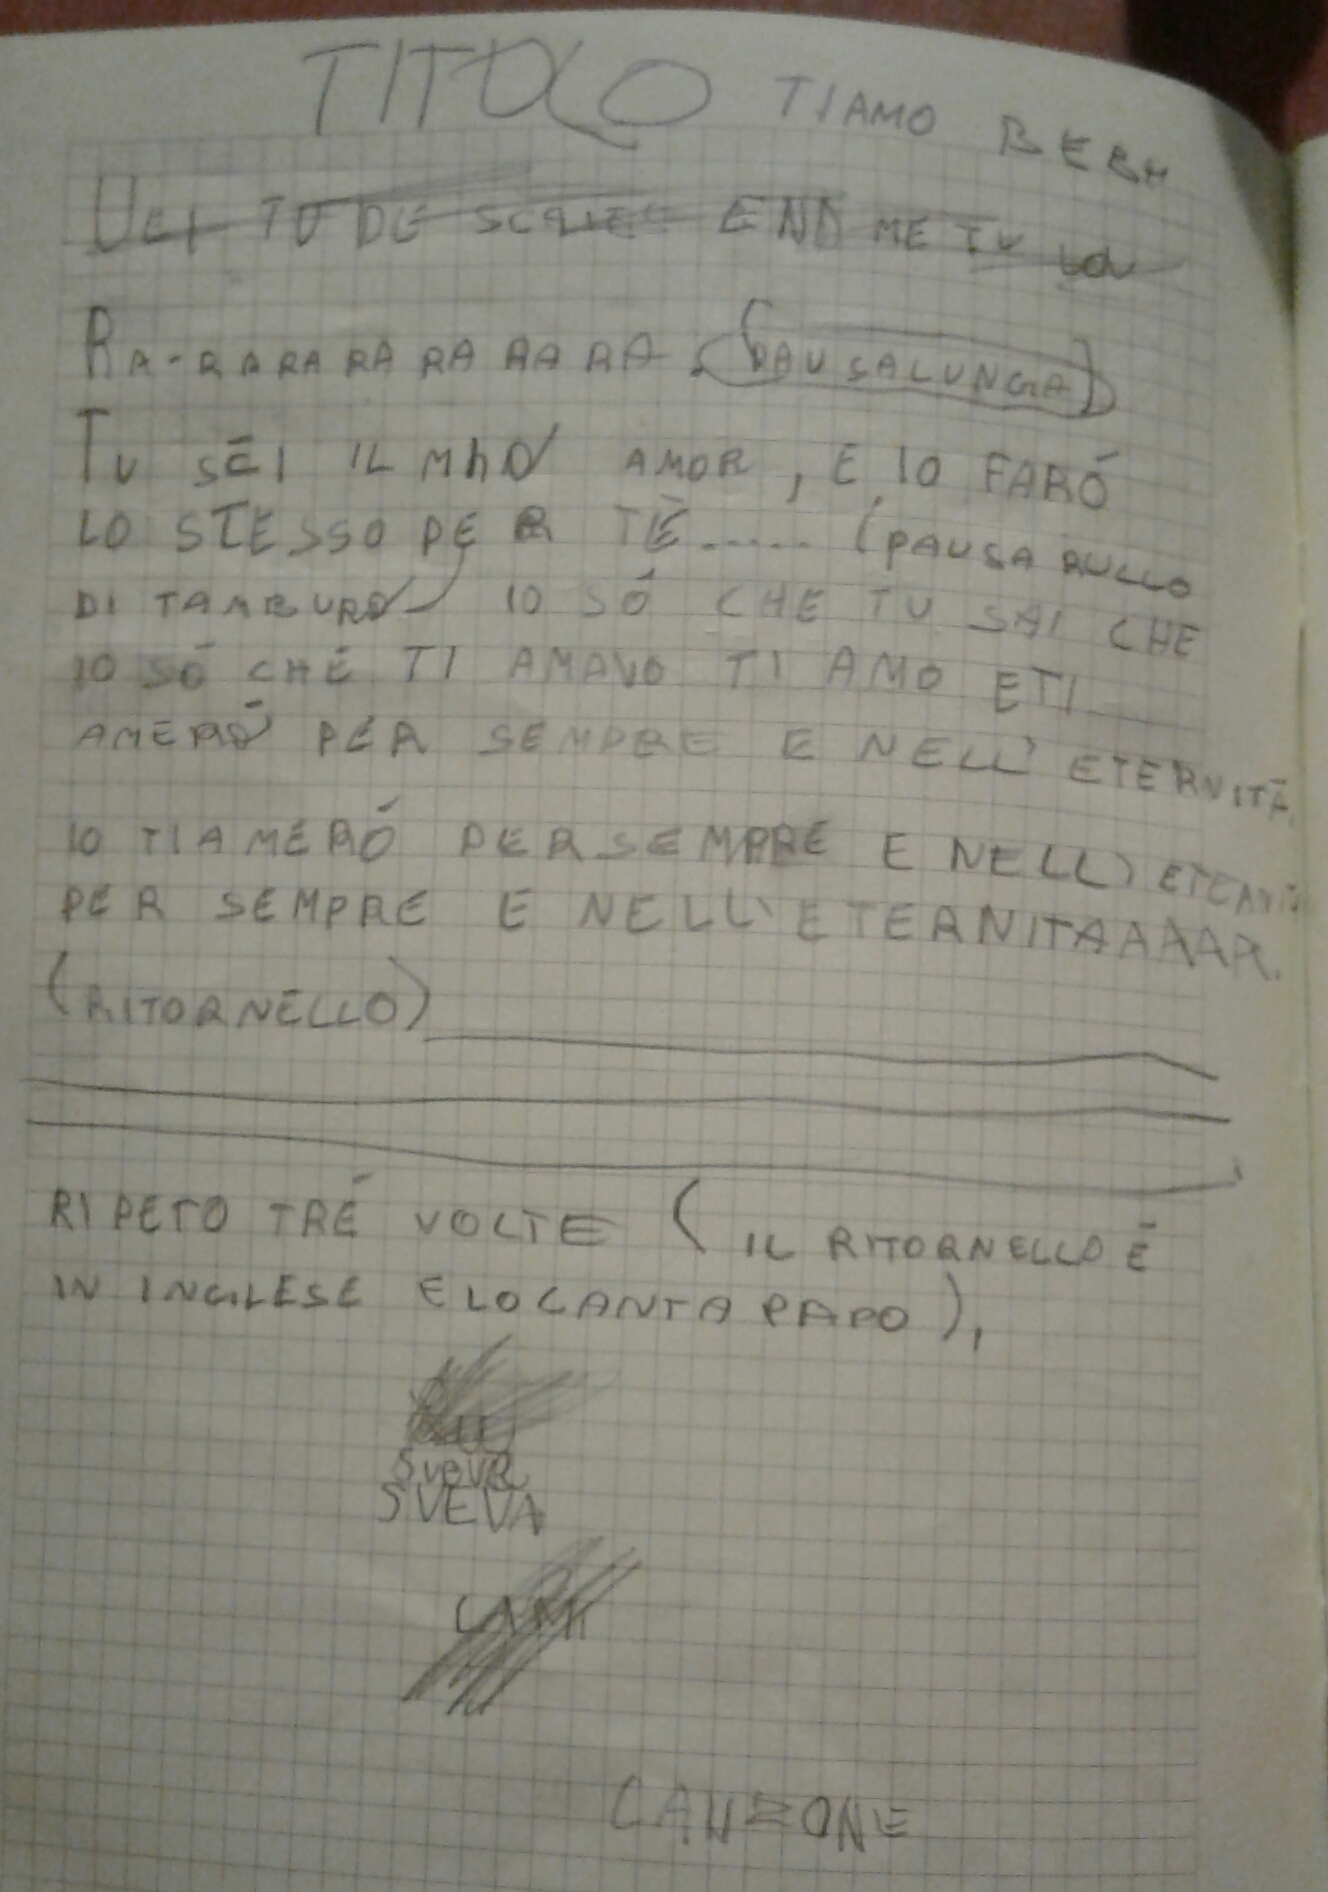 TITOLO TIAMO BEBH
UEI TU DE END ME TU YOU
RA-RARARARARAARARA (PAUSALUNGA)
TU SÉI IL AMOR, E IO FARÓ
LO STESSO PER TÉ..... (PAUSA RULLO
DI TAMBURO) IO SÓ CHE TU SAI CHE
IO SÓ CHÉ TI AMAVO TI AMO ETI
AMERÓ PER SEMPRE E NELL'ETERNITÁ
IO TIAMERÓ PER SEMPRE E NELL'
PER SEMPRE E NELL'ETERNITAAAAA.
(RITORNELLO)
RIPETO TRÉ VOLTE (IL RITORNELLO É
IN INGLESE ELOCANTA PAPO),
SVEVA
SVEVA
CANZONE